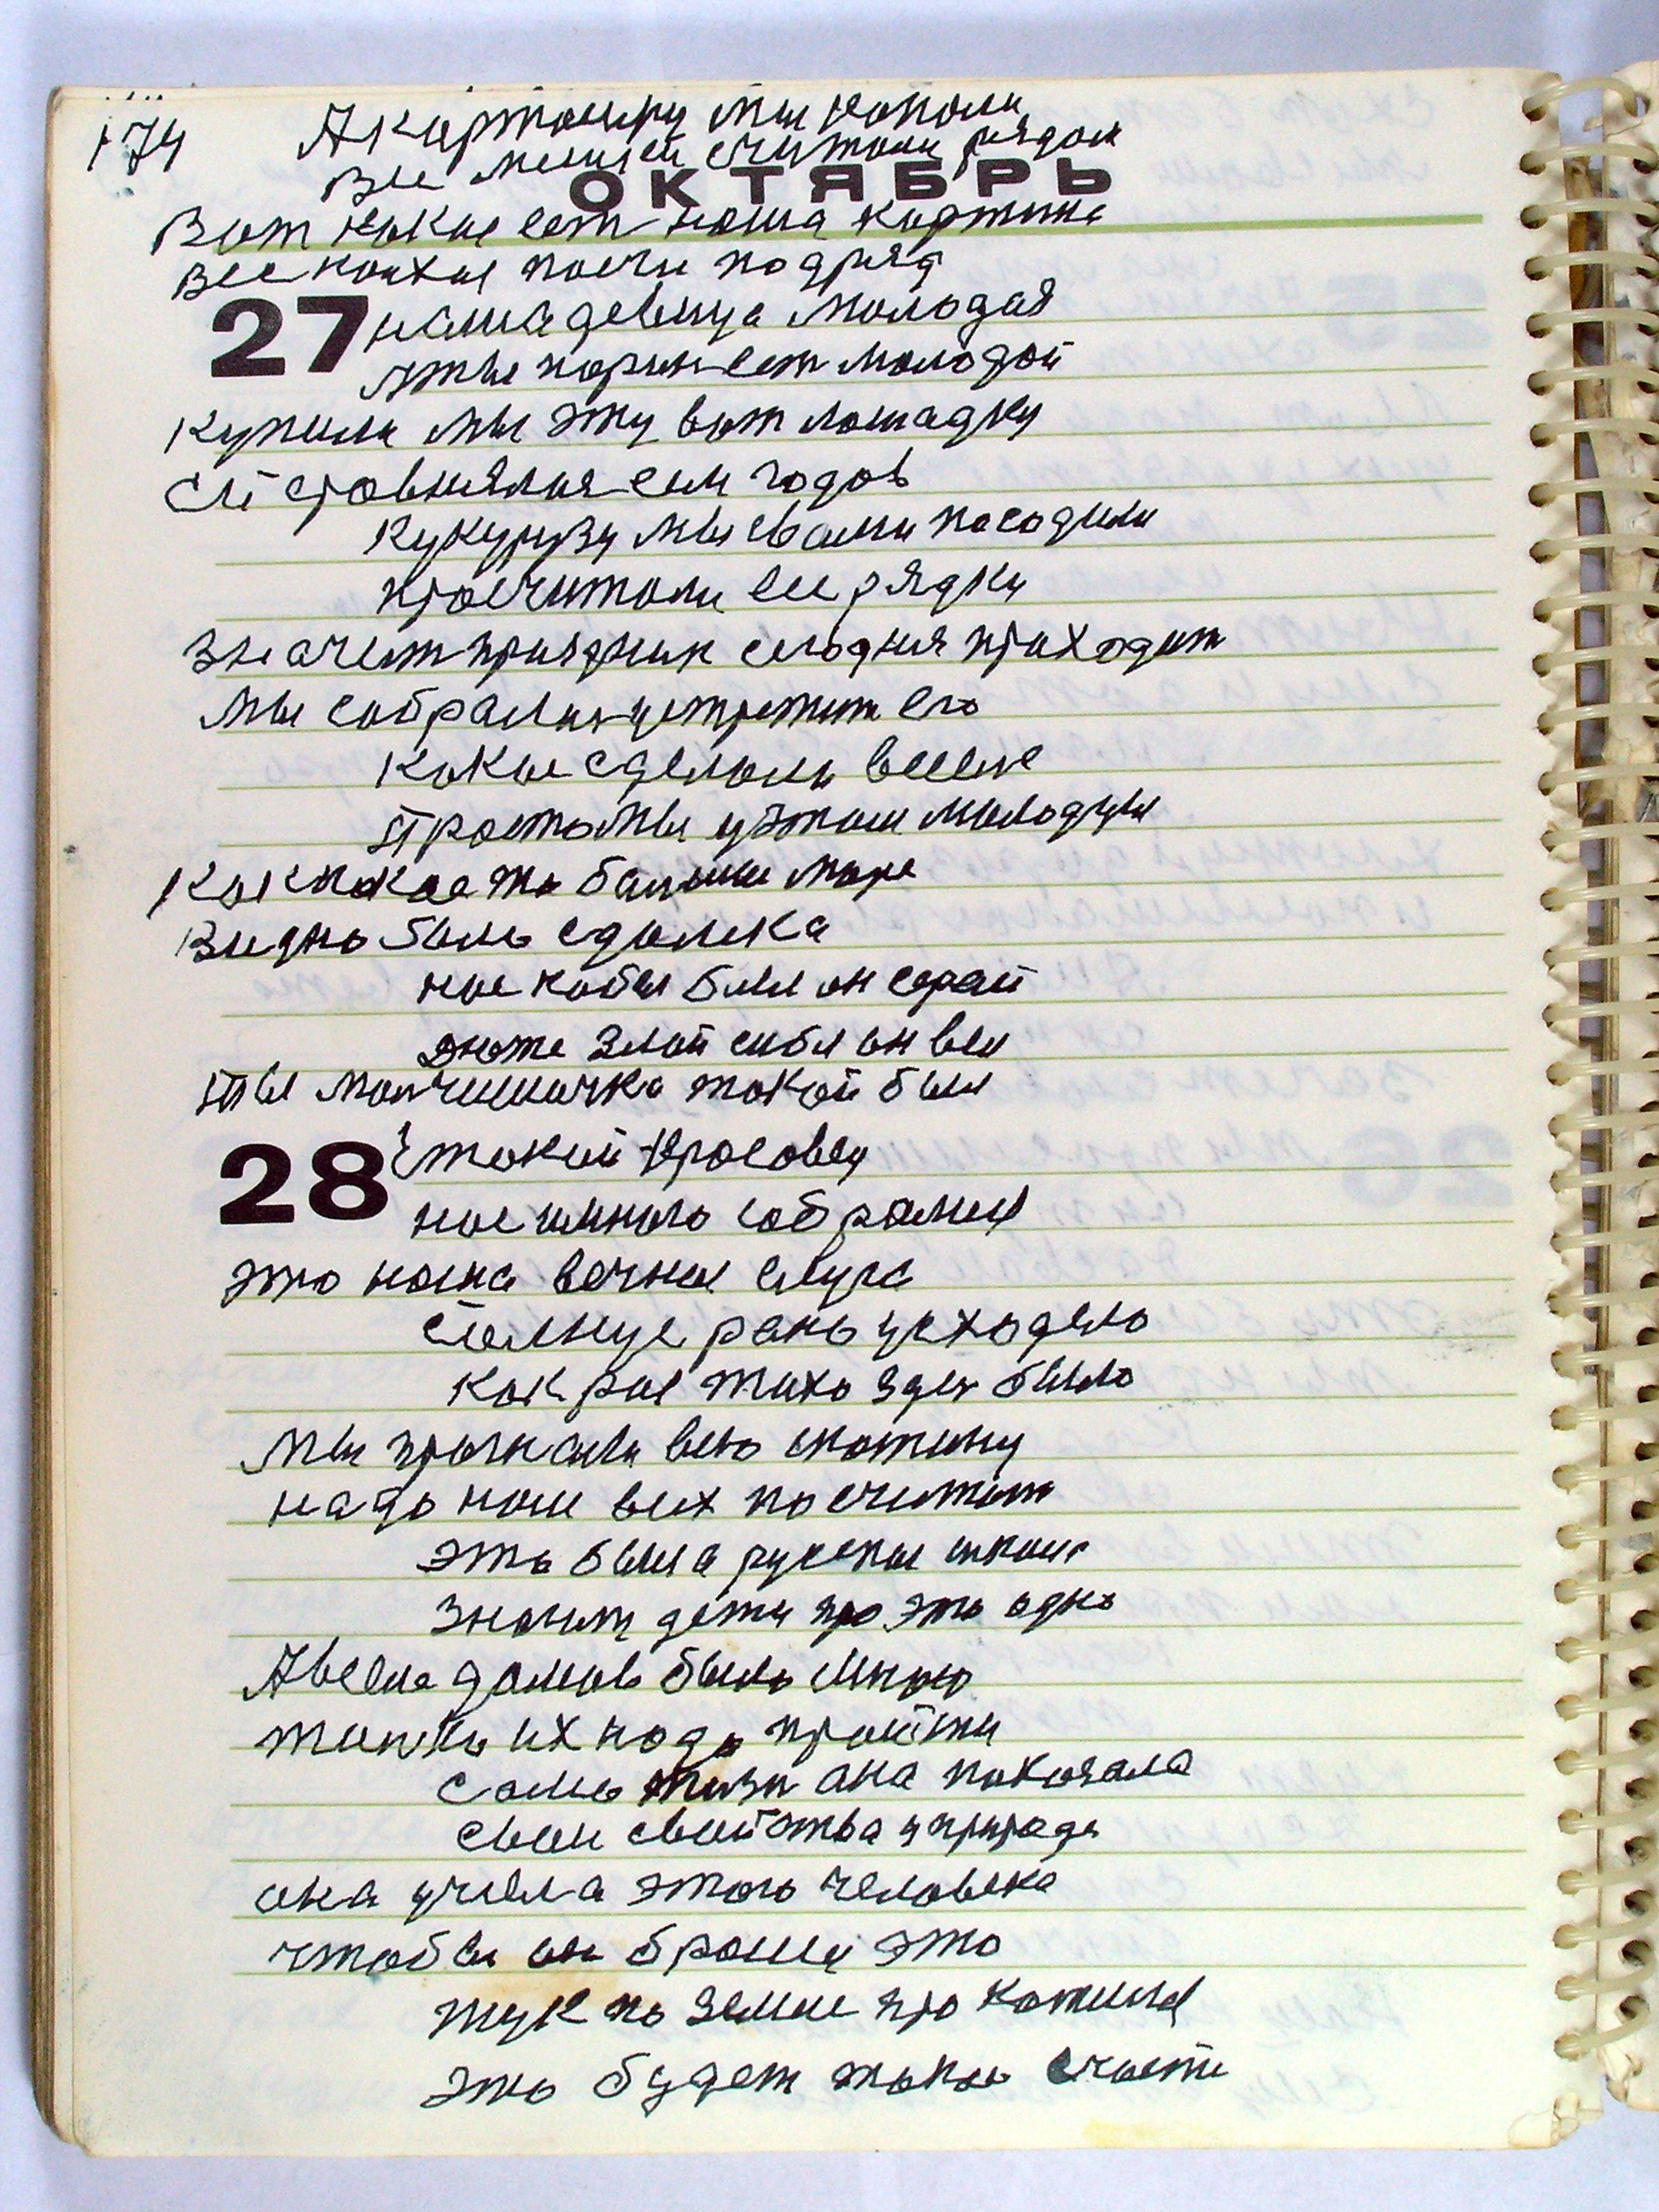 174
А картошку мы копали
Все мешей считали рядом
ОКТЯБРЬ
Вот какие ест наша картина
все поехал почти подряд
27 наша девица молодая
этые парин ест молодой
Купили мы эту вот лошадку
ей сровнялся сем годов
Кукурузу мы свами посодили
просчитали ее рядки
Значет празник сегодня приходит
Мы собралис устретит его
Какие сделали
Просто мы уэтом молодцы
Как какое то болшие море
Видно было сдалека
как бы был он серай
даже злой себя он вел
ты молчишочка такой был
такий красовец
нас много собралися
это наша вечная слуга
Солнце рано усходело
Как рас тихо здес было
28
Мы прогнали всю скотину
надо нам всех посчитат
Это была руская школа
Значит дети про это одно
А всела домов было много
толко их надо пройти
Само жизн она показала
свои свойства уприроде
она учила этого человека
чтобы он бросил это
жук по земле прокотился
это будет такое счасте